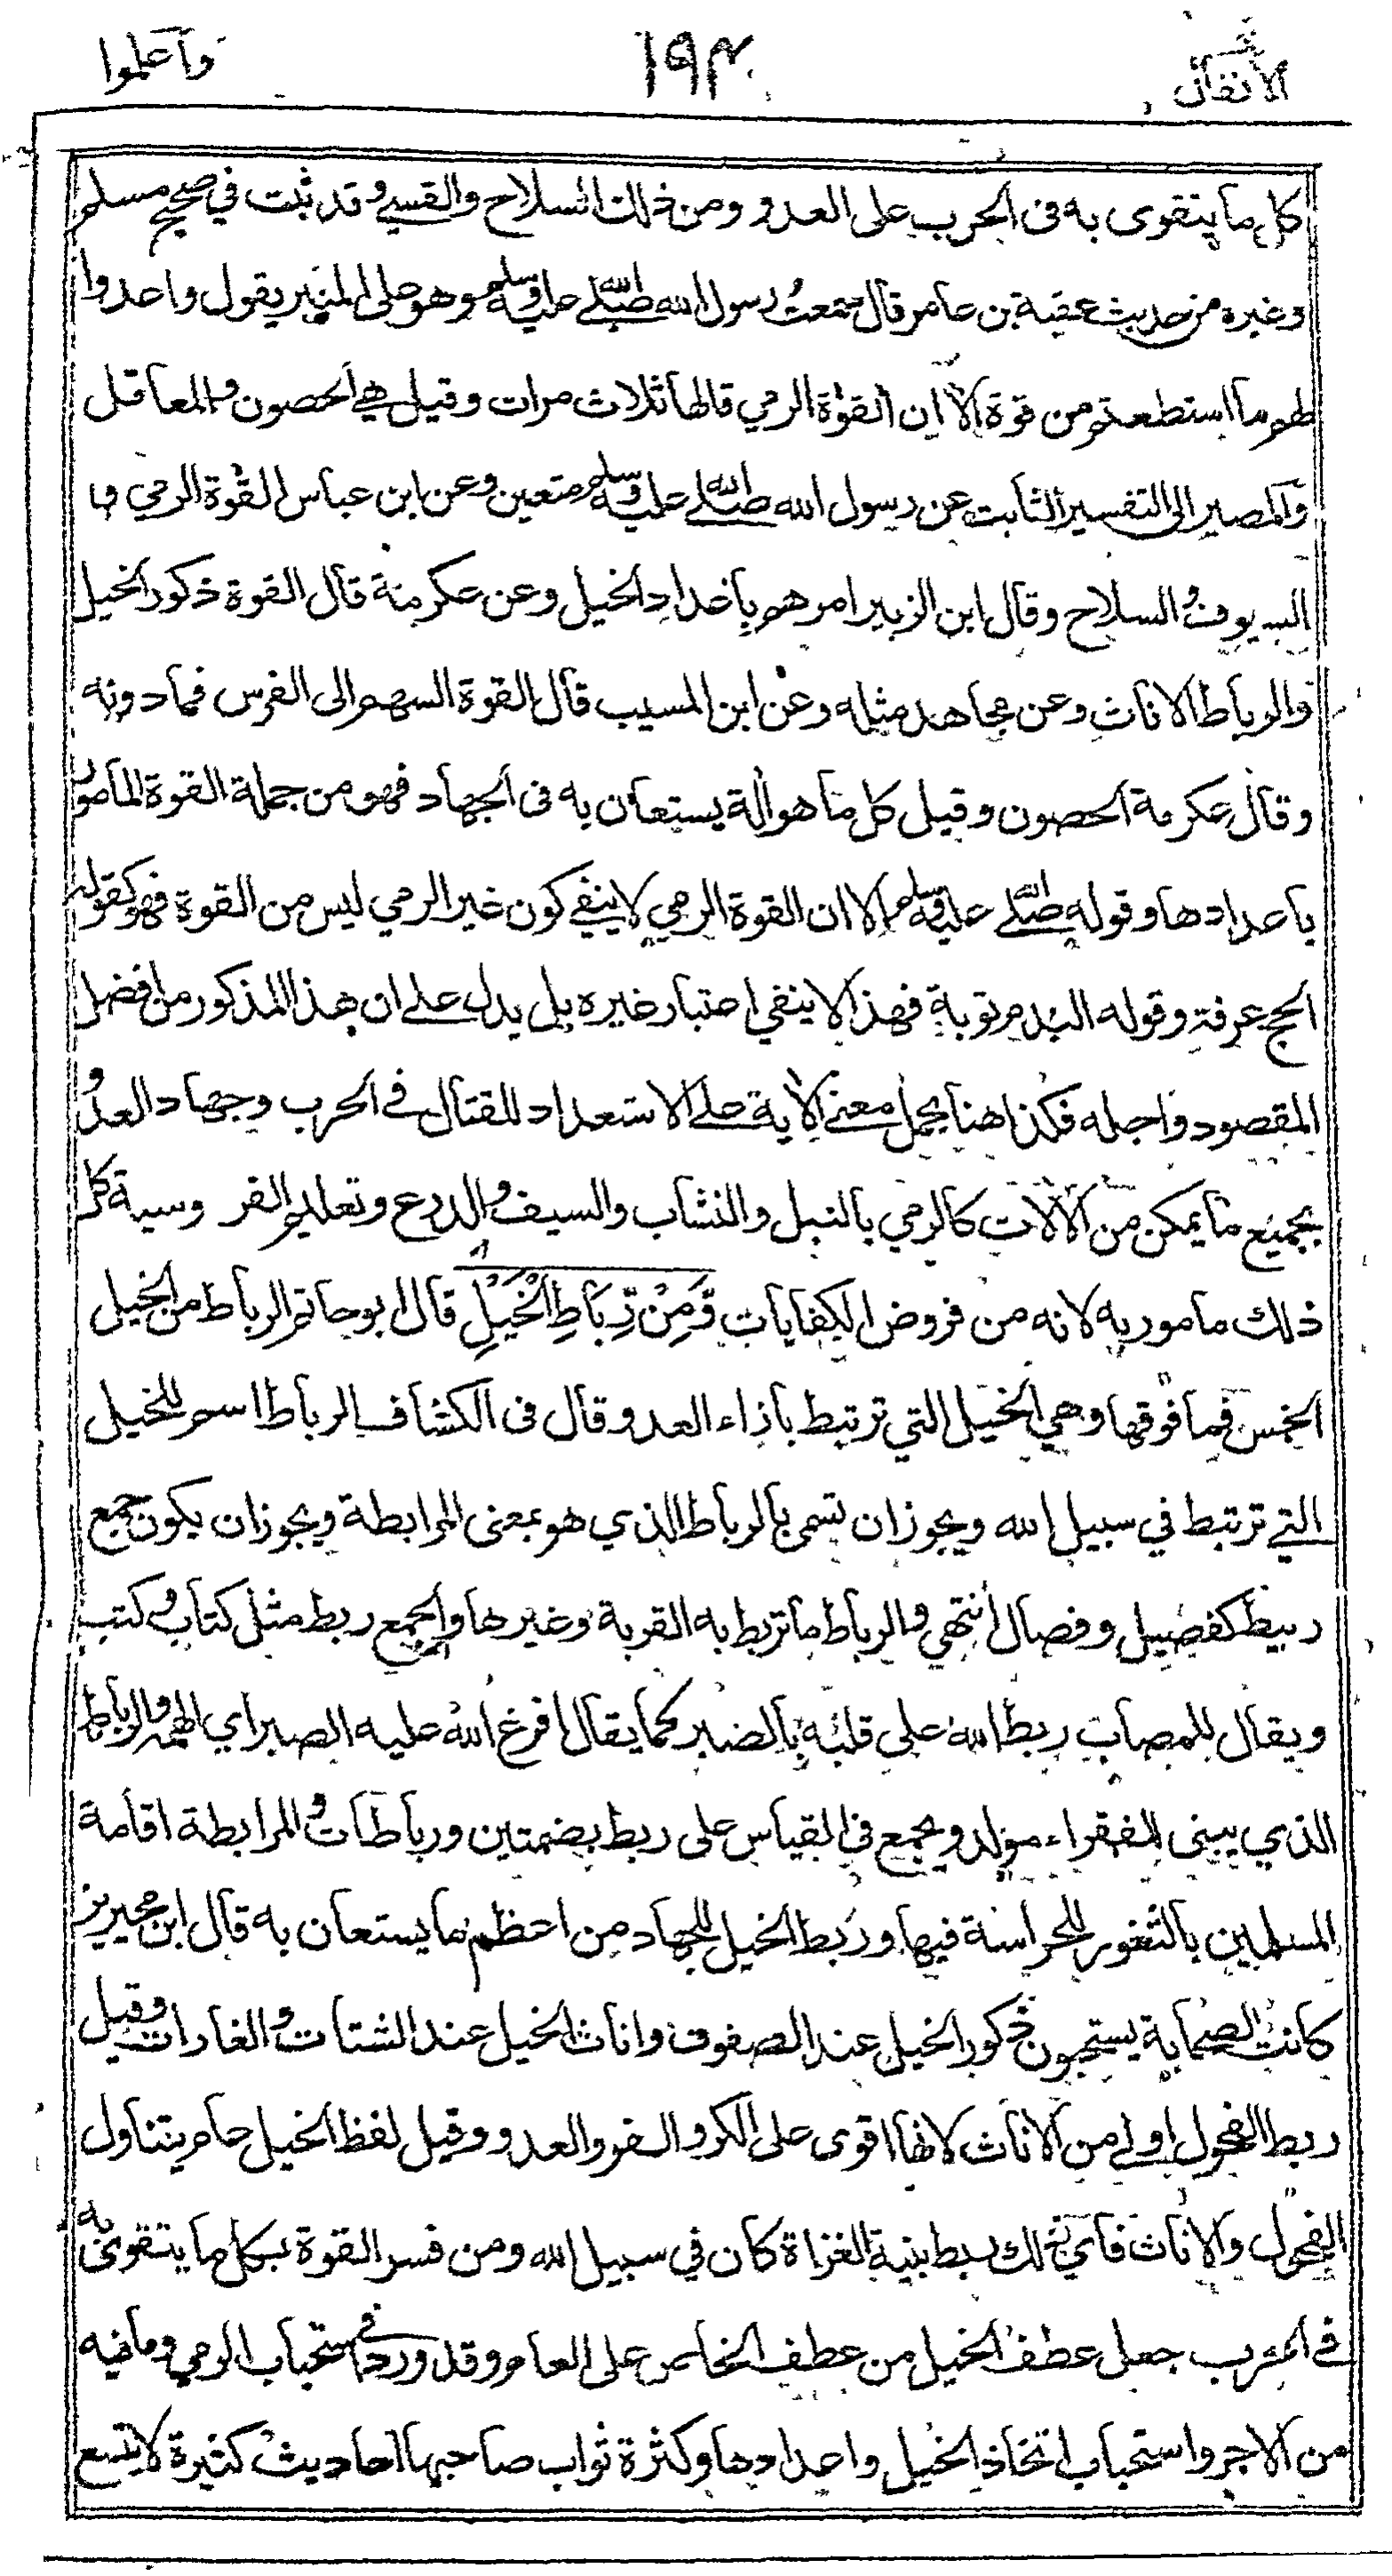 الأنفال
١٩٣
واعلموا
كل ما يتقوى به فى الحرب على العدو ومن ذلك السلاح والقسي وقد ثبت في صحيح مسلم
وغيره من حديث عقبة بن عامر قال سمعت رسول الله صلى الله عليه وسلم وهو على المنبر يقول واعدوا
لهم ما استطعتم من قوة الا ان القوة الرمي قالها ثلاث مرات وقيل هي الحصون والمعاقل
والمصير الى التفسير الثابت عن رسول الله صلى الله عليه وسلم متعين وعن ابن عباس القوة الرمي و
السيوف والسلاح وقال ابن الزبير امرهم باعداد الخيل وعن عكرمة قال القوة ذكور الخيل
والرباط الاناث وعن مجاهد مثله وعن ابن المسيب قال القوة السهم الى الفرس فما دونه
وقال عكرمة الحصون وقيل كل ما هو الة يستعان به فى الجهاد فهو من جملة القوة المامور
باعدادها وقوله صلى الله عليه وسلم الا ان القوة الرمي لا ينفي كون غير الرمي ليس من القوة فهو كقوله
الحج عرفة وقوله الندم توبة فهذا لا ينفي اعتبار غيره بل يدل على ان هذا المذكور من افضل
المقصود واجله فكذا هنا يحمل معنى الاية على الاستعداد للقتال في الحرب وجهاد العدو
بجميع ما يمكن من الالات كالرمي بالنبل والنشاب والسيف والدرع وتعليم الفروسية كل
ذلك مامور به لانه من فروض الكفايات وَّمِنْ رِّبَاطِ الْخَيْلِ قال ابو حاتم الرباط من الخيل
الخمس فما فوقها وهي الخيل التي ترتبط بازاء العدو وقال فى الكشاف الرباط اسم للخيل
التي ترتبط في سبيل الله ويجوز ان تسمى بالرباط الذي هو بمعنى المرابطة ويجوز ان يكون جمع
ربيط كفصيل وفصال انتهى والرباط ما تربط به القربة وغيرها والجمع ربط مثل كتاب وكتب
ويقال للمصاب ربط الله على قلبه بالصبر كما يقال افرغ الله عليه الصبر اي الهمه والرباط
الذي يبنى للفقراء مولد ويجمع في القياس على ربط بضمتين ورباطات والمرابطة اقامة
المسلمين بالثغور للحراسة فيها وربط الخيل للجهاد من اعظم ما يستعان به قال ابن محيريز
كانت الصحابة يستحبون ذكور الخيل عند الصفوف واناث الخيل عند الشتات والغارات وقيل
ربط الفحول اولى من الاناث لانها اقوى على الكر والفر والعدو وقيل لفظ الخيل عام يتناول
الفحول والاناث فاي ذلك ربط بنية الغزاة كان في سبيل الله ومن فسر القوة بكل ما يتقوى به
في الحرب جعل عطف الخيل من عطف الخاص على العام وقد ورد في استحباب الرمي وما فيه
من الاجر واستحباب اتخاذ الخيل واعدادها وكثرة ثواب صاحبها احاديث كثيرة لا يتسع